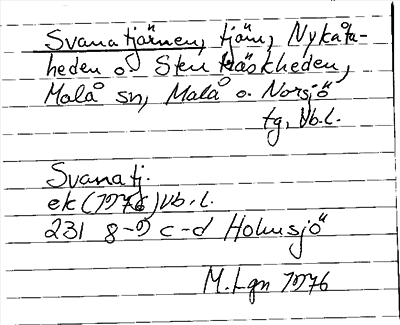 Svanatjärnen, tjärn, Nykåta-
heden o. Stenträskheden,
Malå sn, Malå o. Norsjö
tg, Vb.l.
Svanatj.
ek (1976) Vb.l.
231 8-9 c-d Holmsjö
M.Lgn 1976